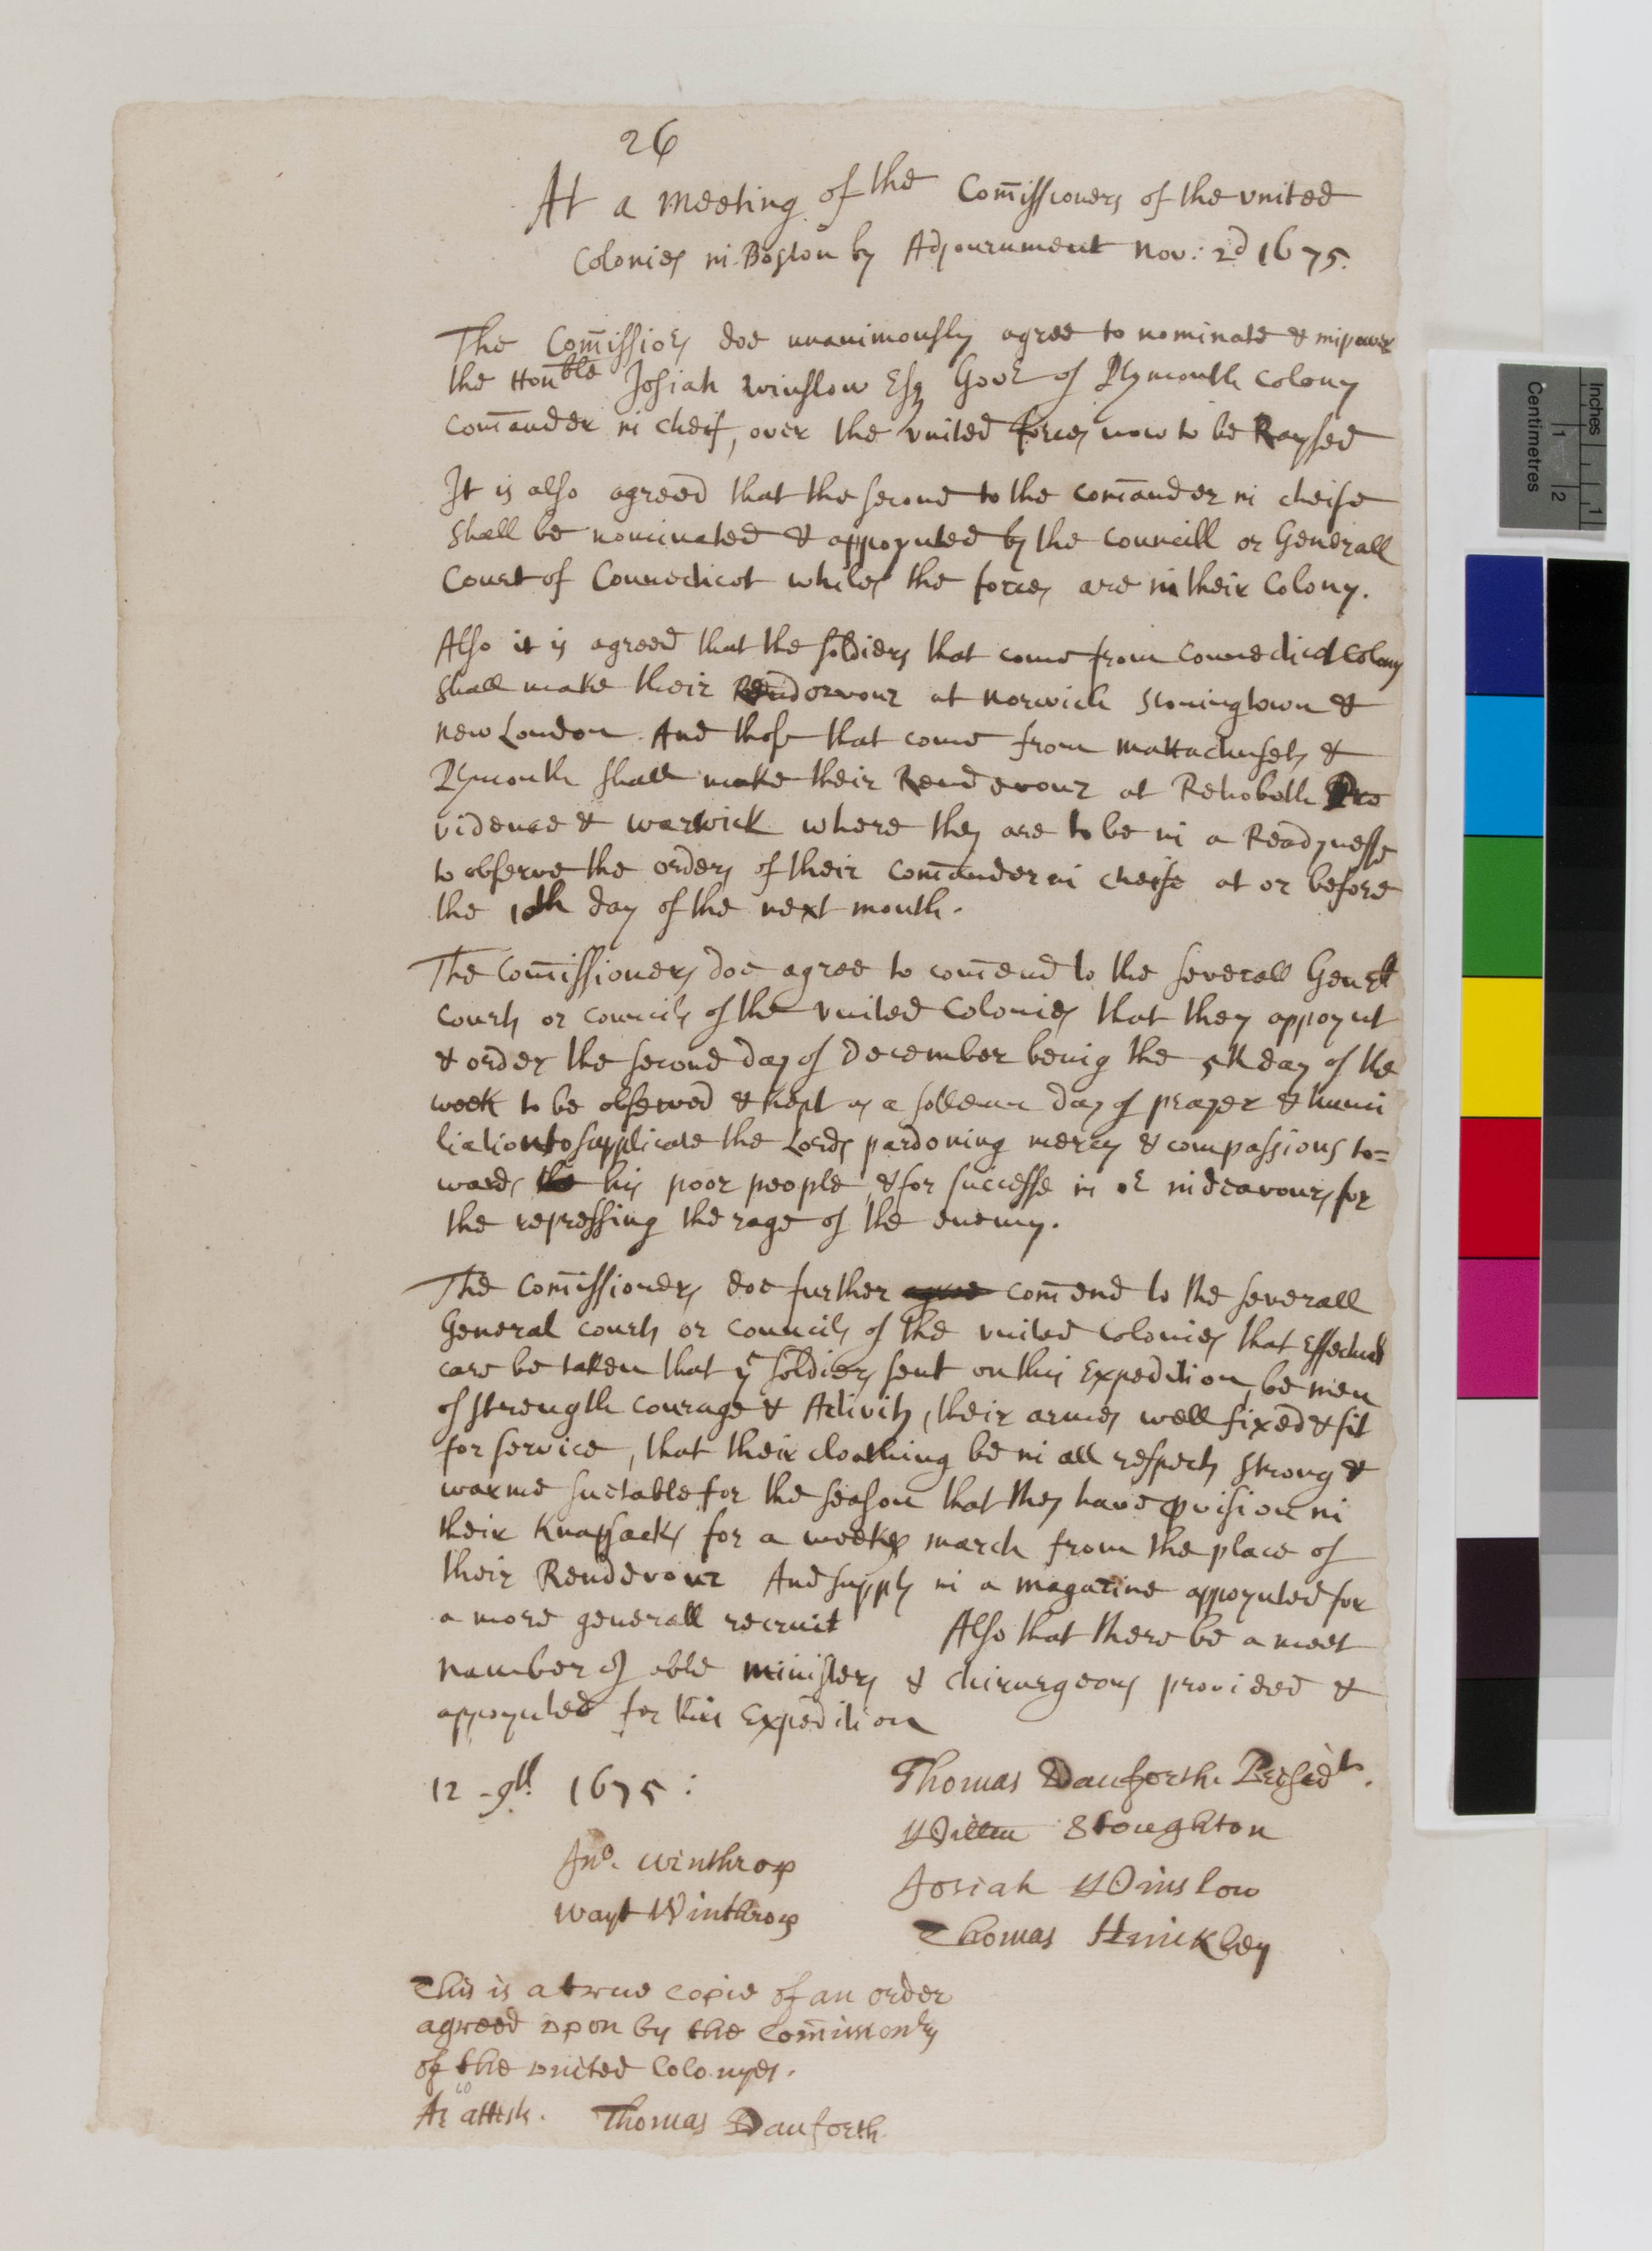 26
At a meeting of the Com̄issioners of the vnited
Colonies in Boston by Adjournment Nov: 2d 1675.
The Com̄issiors doe unanimously agree to nominate & impower
the Honble Josiah Winslow Esq Govr of Plymouth Colony
Com̄ander in cheif, over the vnited forces now to be Raysed
It is also agreed that the second to the Com̄ander in cheife
shall be nominated & appoynted by the Councill or Generall
Court of Connecticot whiles the forces are in their Colony.
Also it is agreed that the soldiers that come from Connecticot Colony
shall make their Rendevouz at Norwich Stoningtown &
New London. And those that come from Mattachusets &
Plymouth shall make their Rendevouz at Rehoboth Pro
vidence & Warwick where they are to be in a Readynesse
to observe the orders of their Com̄ander in cheife at or before
the 10th day of the next month.
The Com̄issioners doe agree to com̄end to the severall Genrll
Courts or Councils of the Vnited Colonies that they appoynt
& order the second day of December being the 5th day of the
week to be observed & kept as a sollemn day of prayer & humi
liation to supplicate the Lords pardoning mercy & compassions to=
wards the his poor people, & for successe in or indeavours for
the repressing the rage of the enemy.
The Com̄issioners doe further agree com̄end to the severall
General Courts or Councils of the vnited Colonies that Effectuall
care be taken that ye soldiers sent on this Expedition, be men
of strength courage & Activity, their armes well fixed & fit
for service, that their cloathing be in all respects strong &
warme suetable for the season that they have pvision in
their Knapsacks for a weeks march from the place of
their Rendevouz And supply in a magazine appoynted for
a more generall recruit Also that there be a meet
number of able ministers & chirurgeons provided &
appoynted for this Expedition
12 - 9th 1675:
Thomas Danforth Presidt.
Willm Stoughton
Jno. Winthrop
Josiah Winslow
Wayt Winthrop
Thomas Hinckley
This is a true copie of an order
agreed vpon by the Com̄issionrs
of the vnited Colonyes.
As attests. Thomas Danforth.
Inches
1
1
2
Centimetres